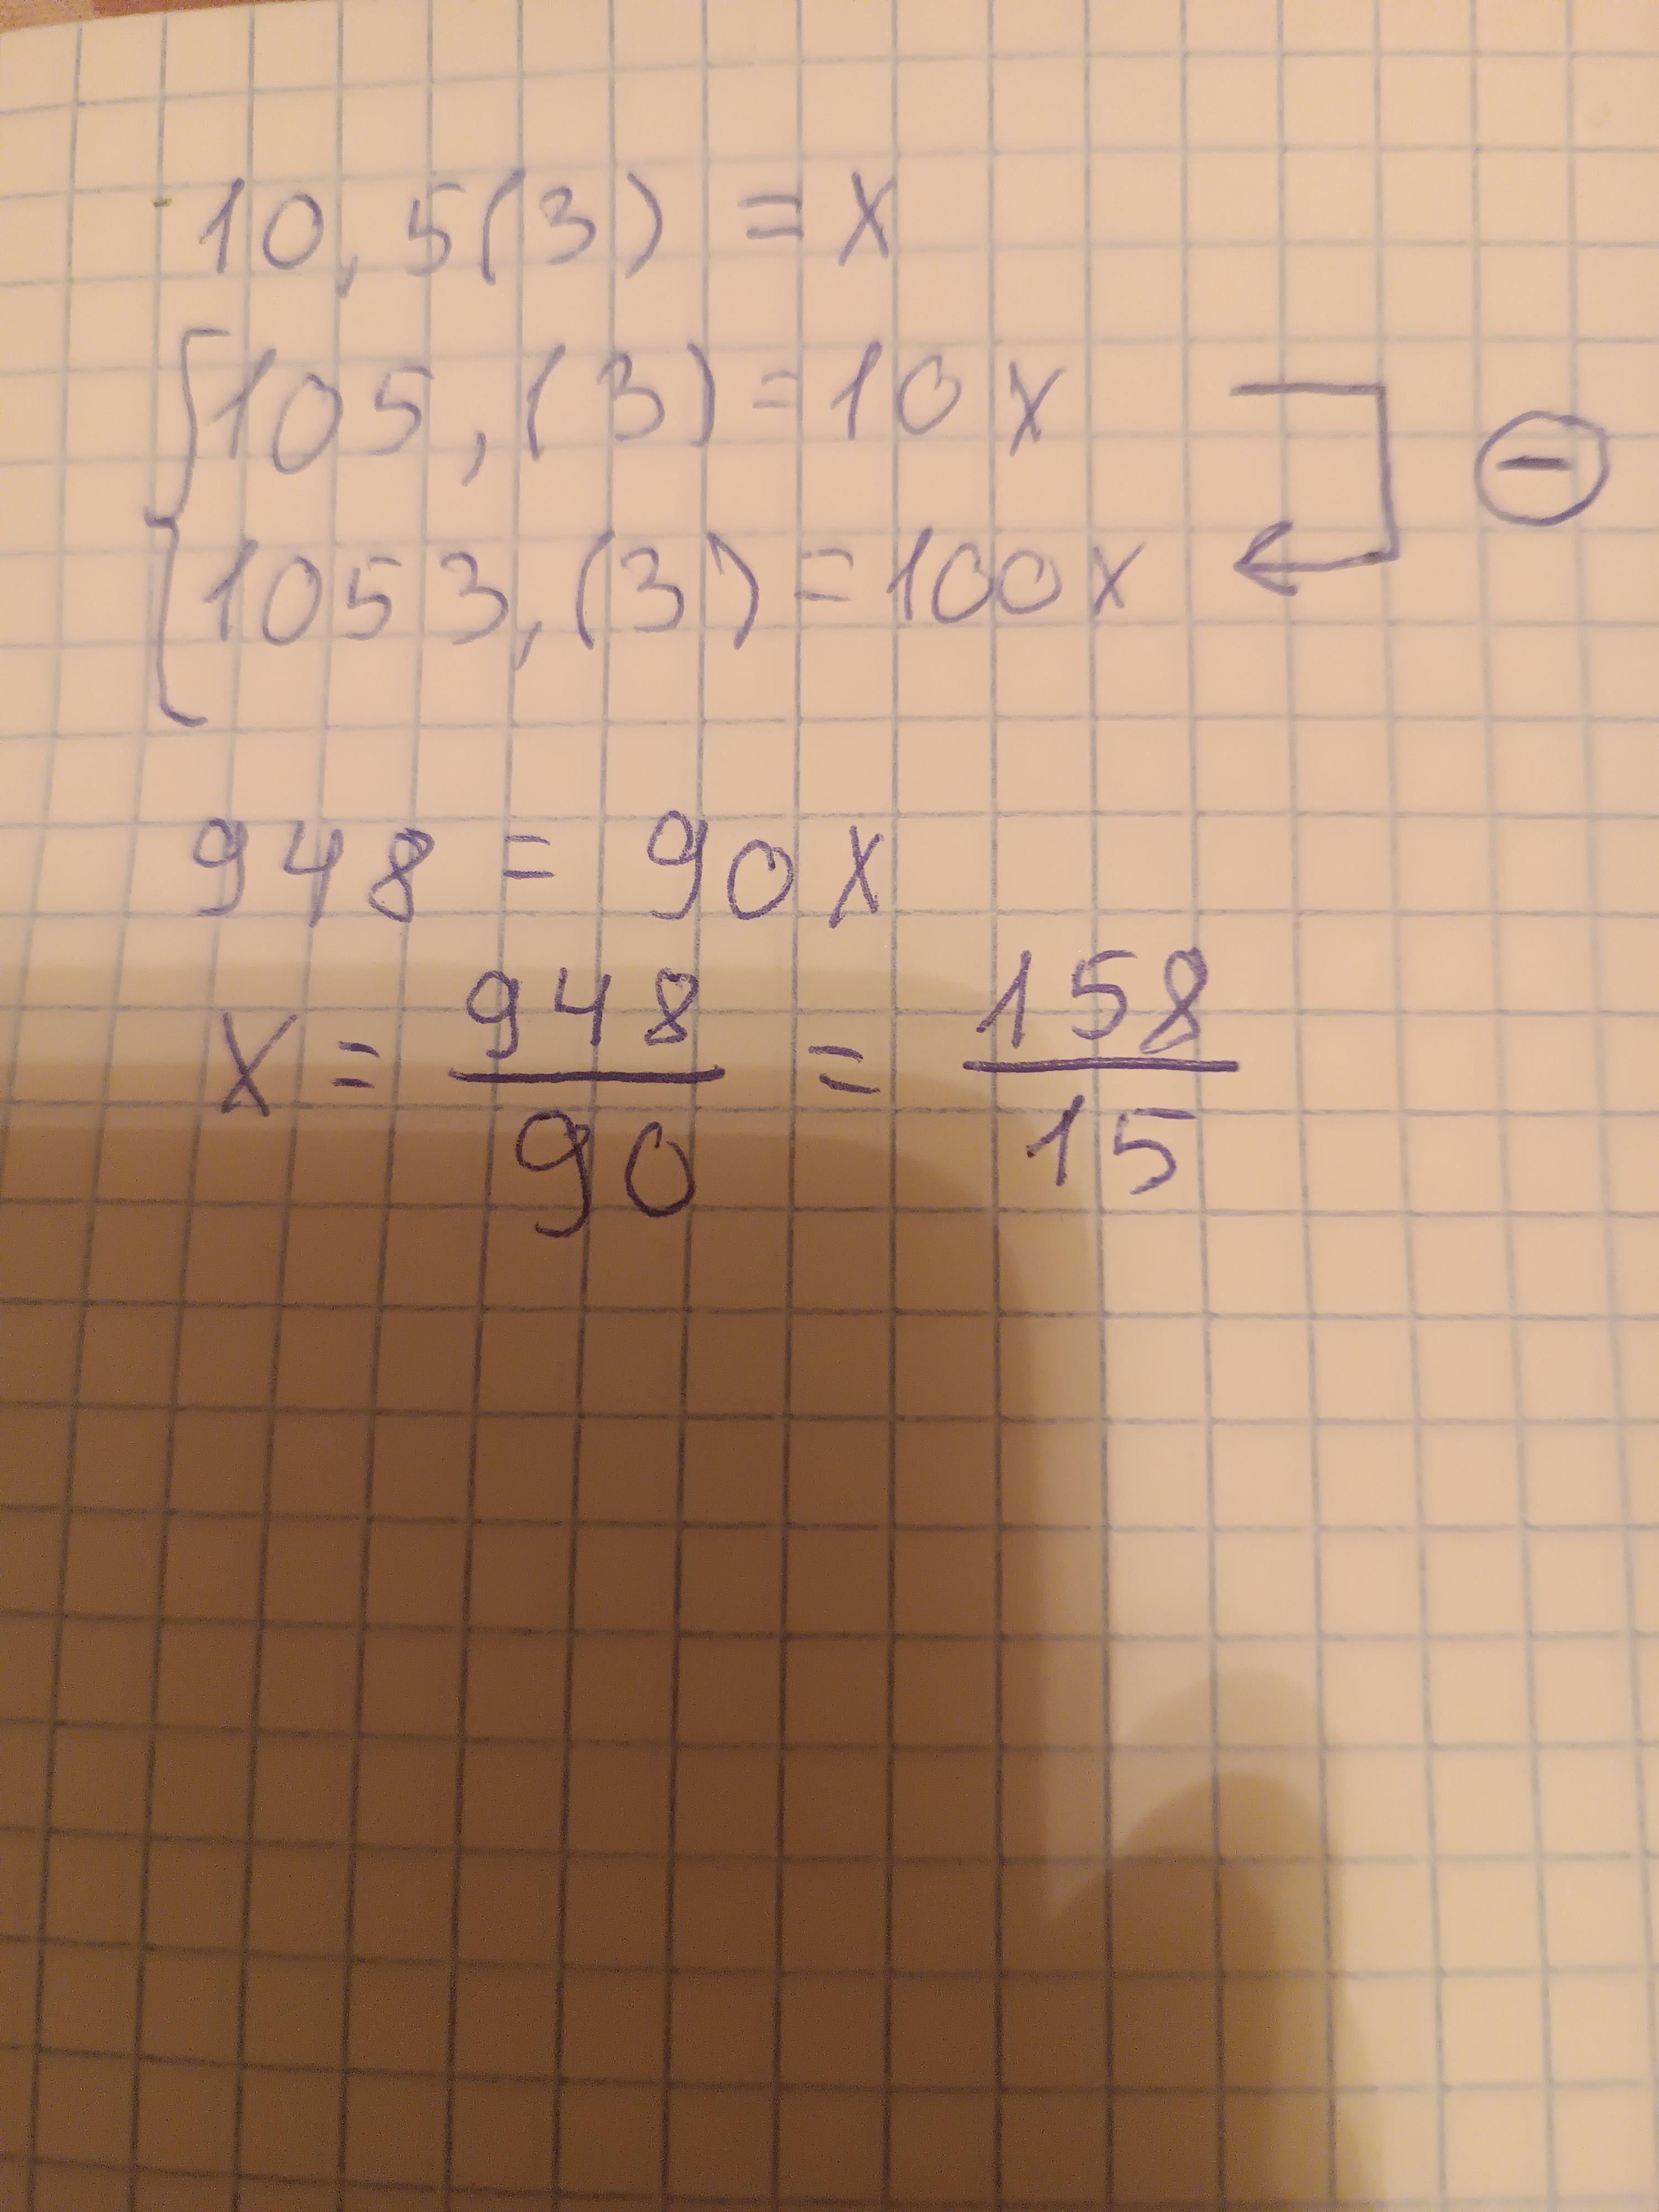 10,5(3) = x
105,(3) = 10x
1053,(3) = 100x
−
948 = 90x
x = 948/90 = 158/15